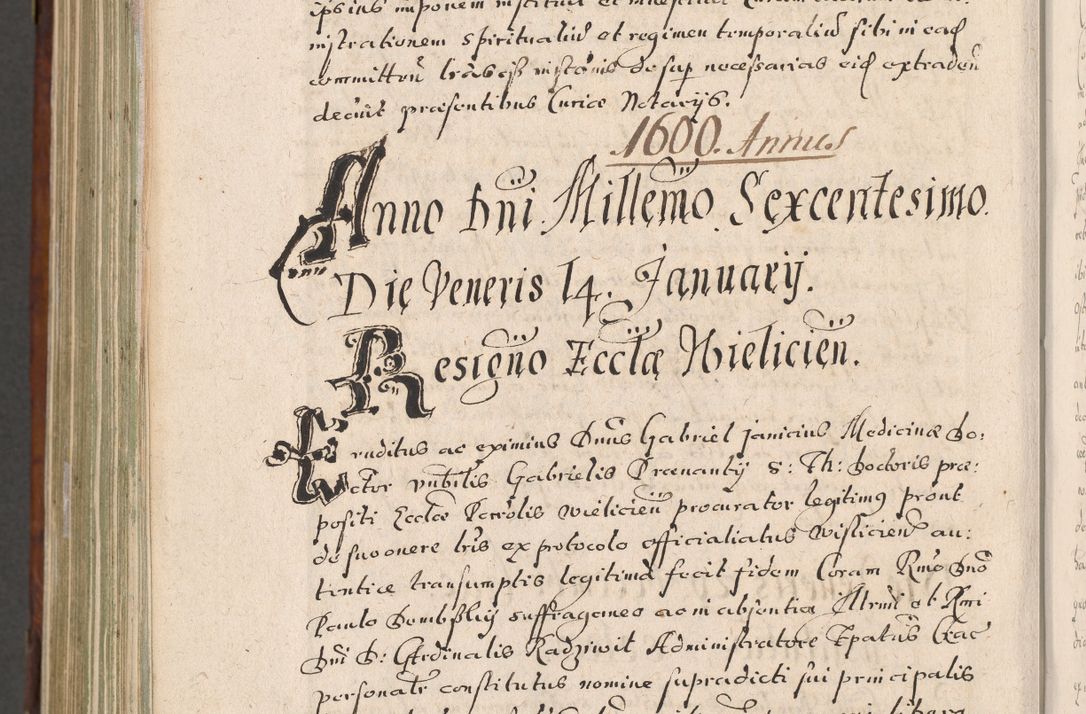 nistrationem spiritualiu et regimen temporaliu sibi in ead
committeñ lrãs desup necessarias eid extradeñ
decrevit praesentibus Curiae Notarijs.
1600. Annus
Anno Dñi Millemõ Sexcentesimo.
Die Veneris 14. Januarij.
Resignõ Ecclæ Wielicieñ.
Eruditus ac eximius Dnus Gabriel Janicius Medicinæ Do:
ctor Gabrielis S: Th: Doctoris præ:
positi Ecclæ Wielicieñ procurator legitimq prout
de suo onere lris ex protocolo officialiatus Wislicieñ au:
tentice transumptis legitima fecit fidem Coram Rmo Dno
Paulo Dombskij suffraganeo ac in absentia Illrmi et Rmi
Dni D: Cardinalis Radziwil Administratore Epatus Crac
personalr constitutus nomine supradicti sui principalis